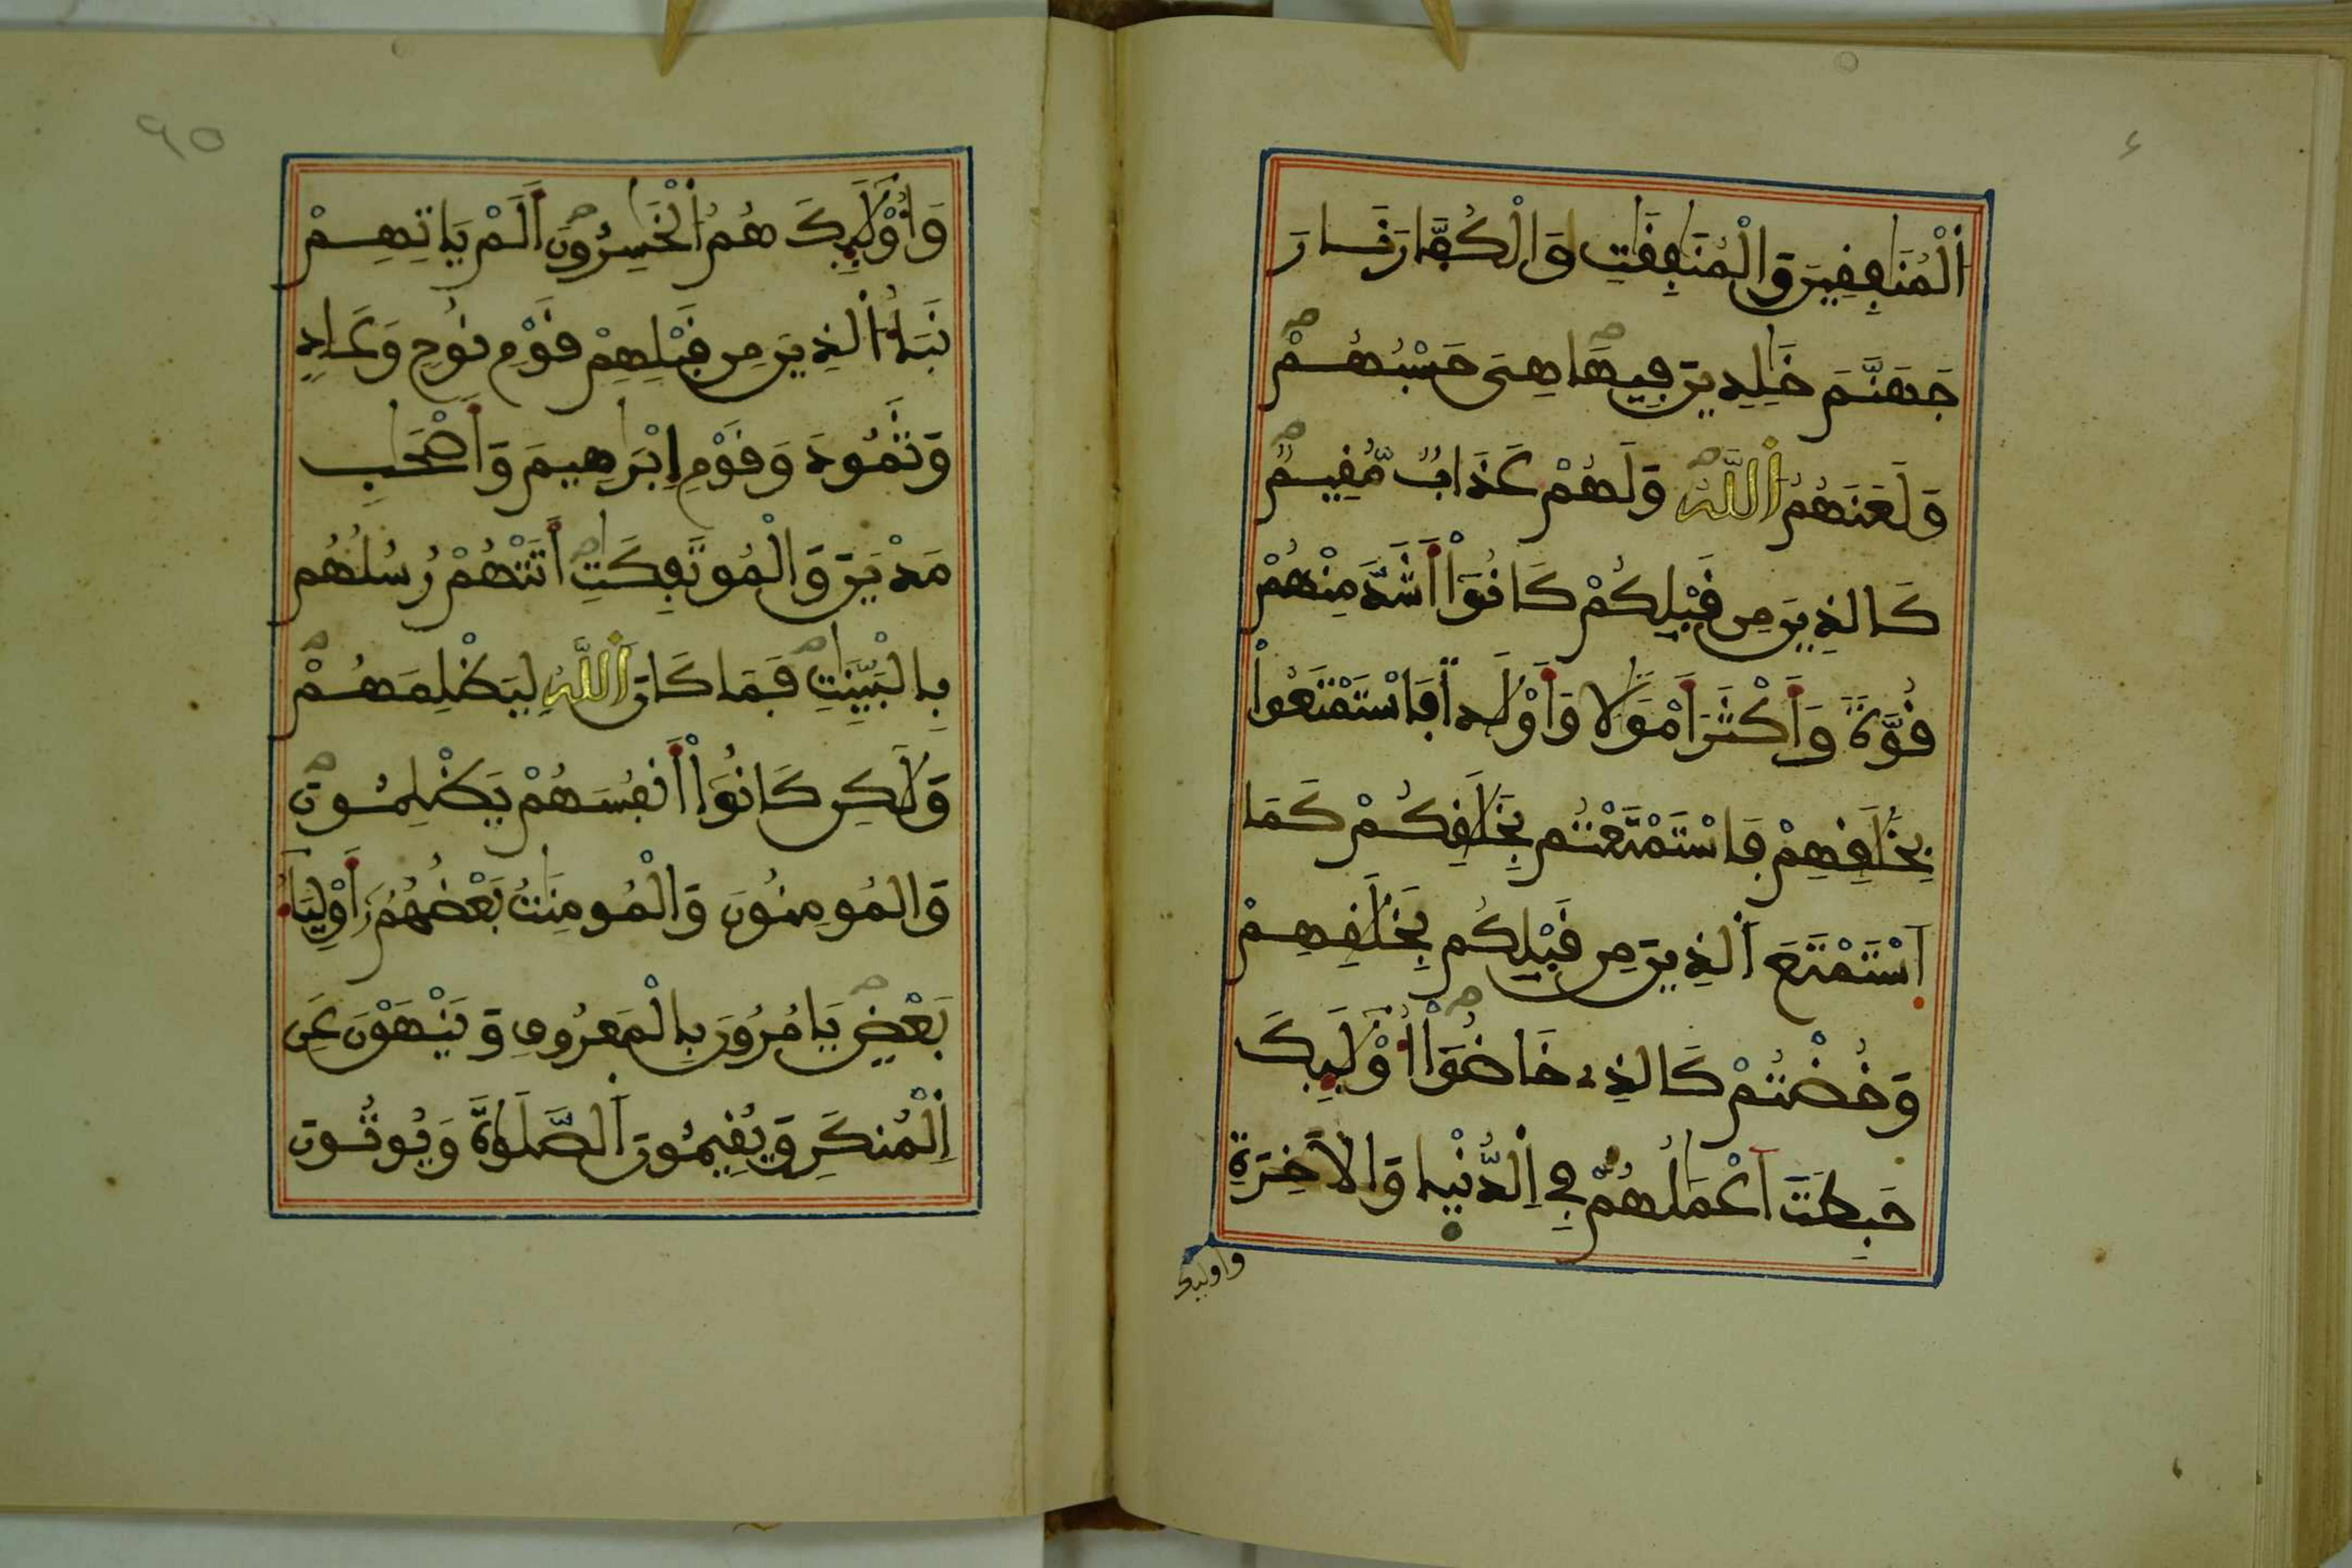 اَ۬لْمُنَٰفِقِينَ وَالْمُنَٰفِقَٰتِ وَالْكُفَّارَ نَارَ
جَهَنَّمَ خَٰلِدِينَ فِيهَا هِىَ حَسْبُهُمْ
وَلَعَنَهُمُ اُ۬للَّهُ وَلَهُمْ عَذَابٌ مُّقِيمٌ
كَالذِينَ مِن قَبْلِكُمْ كَانُوٓاْ أَشَدَّ مِنْهُمْ
قُوَّةً وَأَكْثَرَ أَمْوَٰلًا وَأَوْلَٰدًا فَاسْتَمْتَعُواْ
بِخَلَٰقِهِمْ فَاسْتَمْتَعْتُم بِخَلَٰقِكُمْ كَمَا
اَ۪سْتَمْتَعَ اَ۬لذِينَ مِن قَبْلِكُم بِخَلَٰقِهِمْ
وَخُضْتُمْ كَالذِے خَاضُوٓاْ أُوْلَٰٓئِكَ
حَبِطَتَ اَعْمَٰلُهُمْ فِے اِ۬لدُّنْيَا وَالَاخِرَةِ
وأوليك
٩٥
وَأُوْلَٰٓئِكَ هُمُ اُ۬لْخَٰسِرُونَ أَلَمْ يَاتِهِمْ
نَبَأُ اُ۬لذِينَ مِن قَبْلِهِمْ قَوْمِ نُوحٍ وَعَادٍ
وَثَمُودَ وَقَوْمِ إِبْرَٰهِيمَ وَأَصْحَٰبِ
مَدْيَنَ وَالْمُوتَفِكَٰتِ أَتَتْهُمْ رُسُلُهُم
بِالْبَيِّنَٰتِ فَمَا كَانَ اَ۬للَّهُ لِيَظْلِمَهُمْ
وَلَٰكِن كَانُوٓاْ أَنفُسَهُمْ يَظْلِمُونَ
وَالْمُومِنُونَ وَالْمُومِنَٰتُ بَعْضُهُمُۥٓ أَوْلِيَآءُ
بَعْضٍ يَامُرُونَ بِالْمَعْرُوفِ وَيَنْهَوْنَ عَنِ
اِ۬لْمُنكَرِ وَيُقِيمُونَ اَ۬لصَّلَوٰةَ وَيُوتُونَ